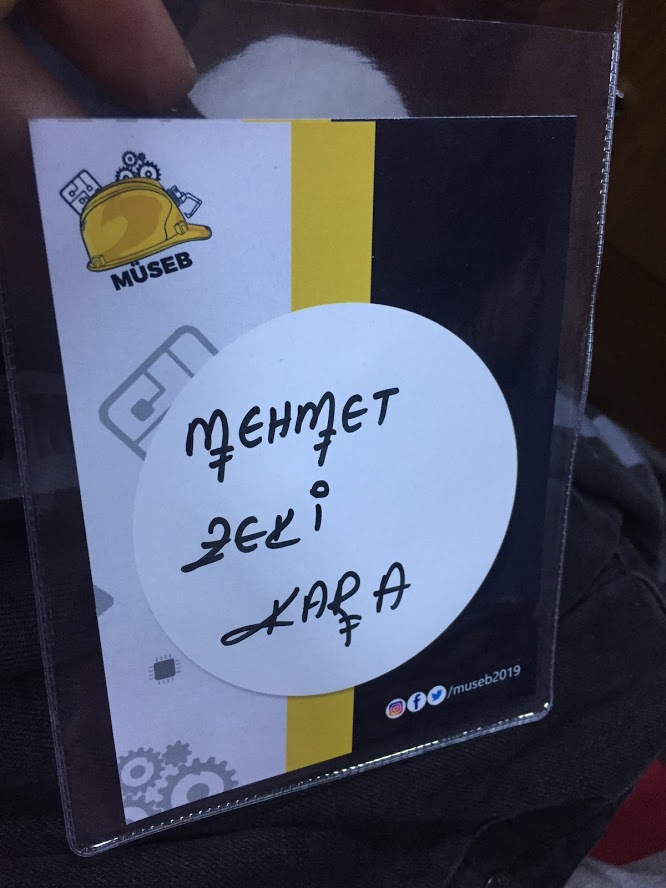 MÜSEB
MEHMET
ZEKİ
KARA
/museb2019